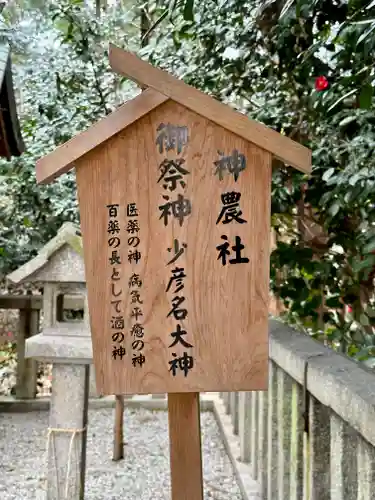 神農社
御祭神 少彦名大神
医薬の神 病気平癒の神
百薬の長として酒の神